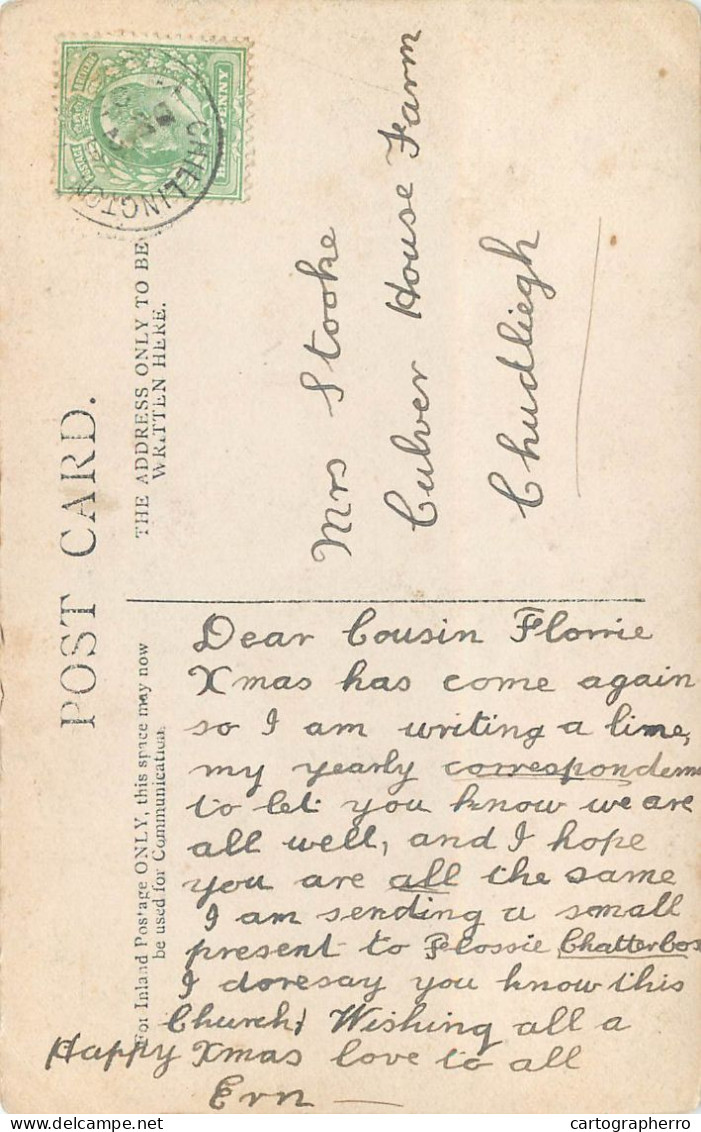 POST CARD.
THE ADDRESS ONLY TO BE
WRITTEN HERE.
For Inland Postage ONLY, this space may now
be used for Communication.
CHILLINGTON
Mrs Stooke
Culver House Farm
Chudliegh
Dear Cousin Florrie
Xmas has come again
so I am writing a line,
my yearly
to let you know we are
all well, and I hope
you are all the same
I am sending a small
present to Flossie Chatterbox
I daresay you know this
Church, Wishing all a
Happy Xmas love to all
Ern
cartographerro